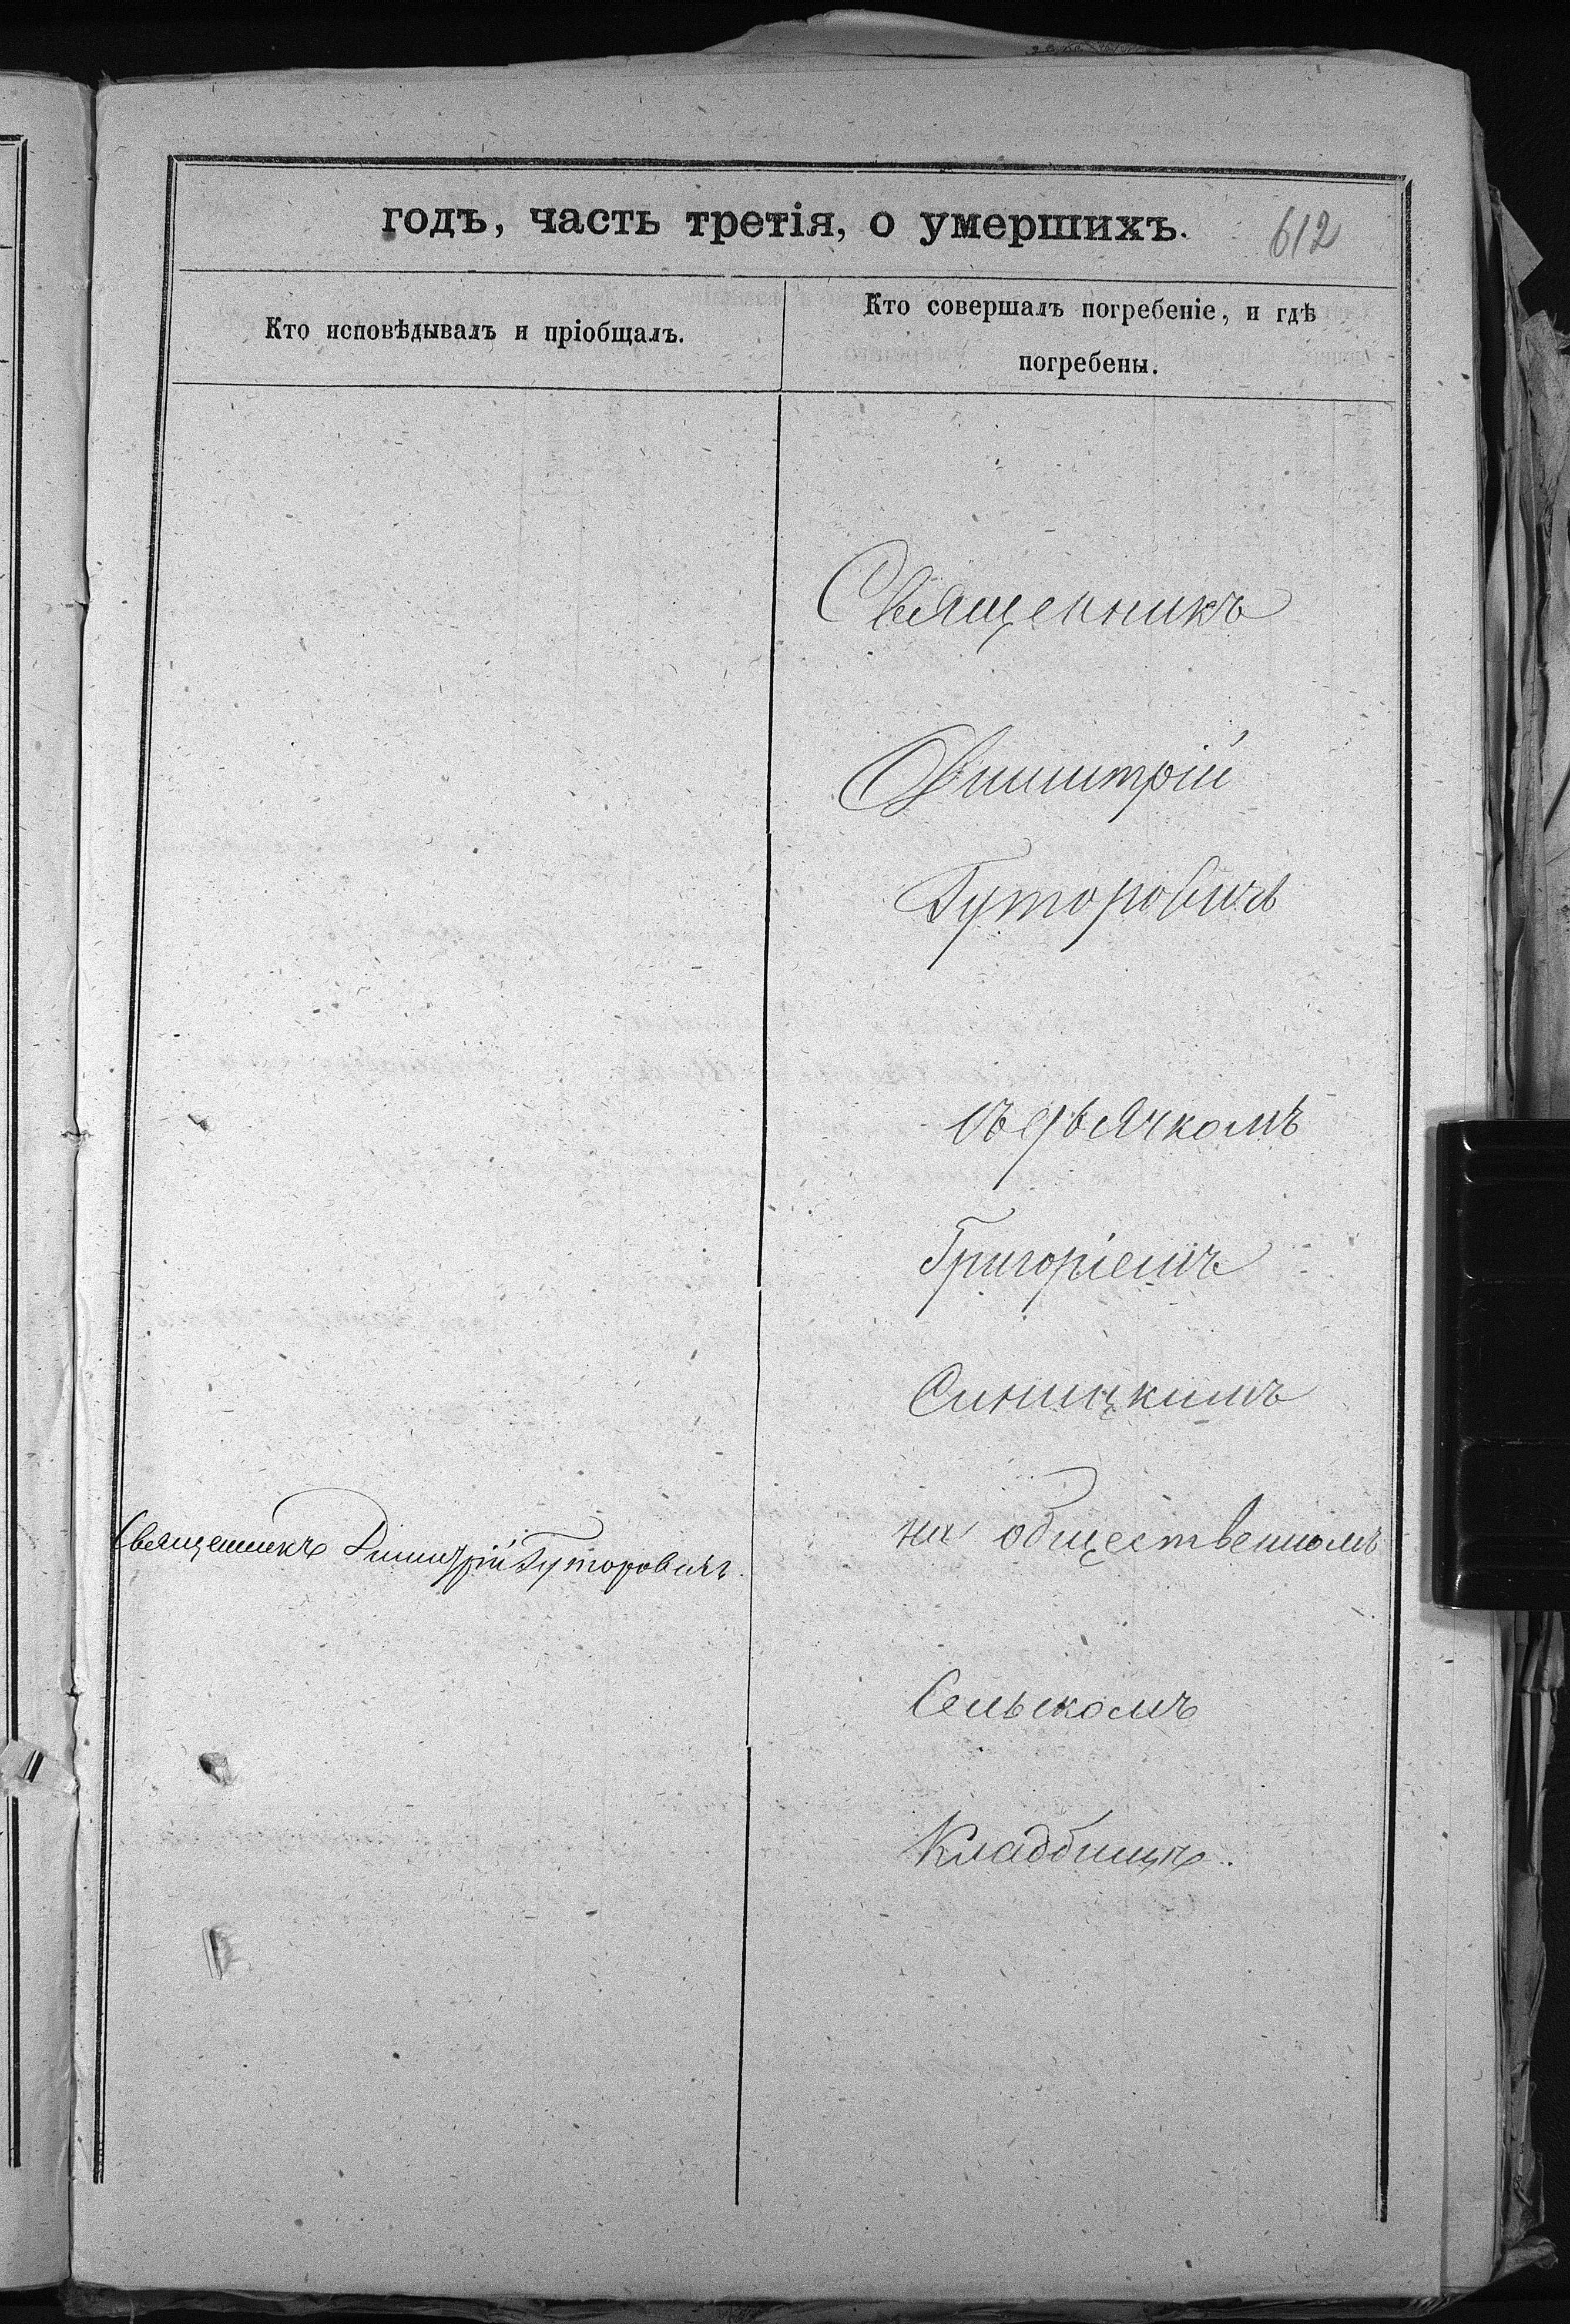 годъ, часть третія, о умершихъ.
612
Кто исповѣдывалъ и пріобщалъ.
Кто совершалъ погребеніе, и гдѣ
погребены.
Священникъ
Димитрій
Гуторовичъ
съ дьячкомъ
Григоріемъ
Синицкимъ
на общественномъ
Священникъ Димитрій Гуторовичъ.
Сельскомъ
Кладбищѣ.